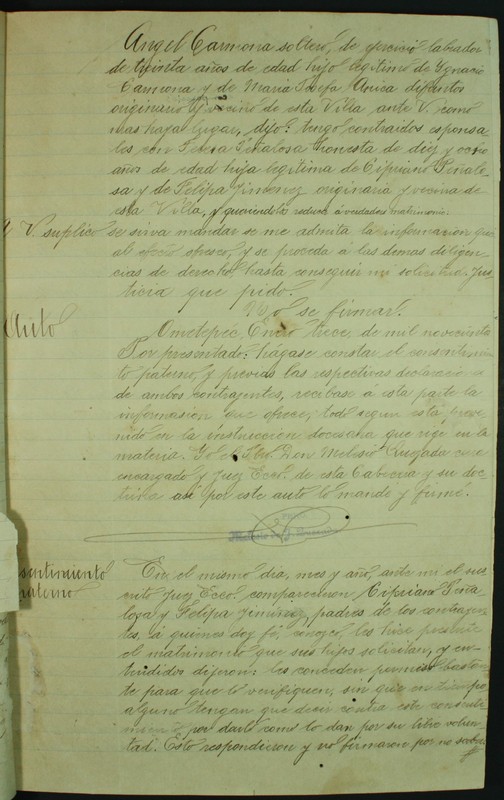 Angel Carmona soltero, de ejercicio labrador
de treinta años de edad hijo legitimo de Ygnacio
Carmona y de Maria Josefa Arica difuntos
originario y vecino de esta Villa ante V. como
mas haya lugar, dijo: tengo contraidos esponsa
les con Peñalosa honesta de diez y ocho
años de edad hija legitima de Cipriano Peñalo
sa y de Felipa Jimenez originaria y vecina de
esta Villa, y queriendolos reducir á verdadero matrimonio.
A V. suplico se sirva mandar se me admita la informacion que
al efecto ofresco, y se proceda á las demas diligen
cias de derecho hasta conseguir mi solicitud. Jus
ticia que pido.
No se firmar.
Auto
Ometepec, Enero trece, de mil novecientos
Por presentado: hagase constar el consentimien
to paterno, y previas las respectivas declaraciones
de ambos contrayentes, recibase á esta parte la
informacion que ofrece, todo segun está preve
nido en la instruccion docesana que rige en la
materia. Yo el Pbro. Don Melesio cura
encargado y Juez Ecco. de esta Cabecera y su doc
trina así por este auto lo mandé y firmé.
sentimiento
paterno
En el mismo dia, mes y año, ante mi el sus
crito Juez Ecco. comparecieron Cipriano Peña
loza y Felipa Jimenez, padres de los contrayen
tes, á quienes doy fé, conozco, les hice presente
el matrimonio que sus hijos solicitan, y en
tendidos dijeron: les conceden permiso bastan
te para que lo verifiquen, sin que en tiempo
alguno tengan que decir contra este consenti
miento por darlo como lo dan por su libre volun
tad. Esto respondieron y no firmaron por no saber.